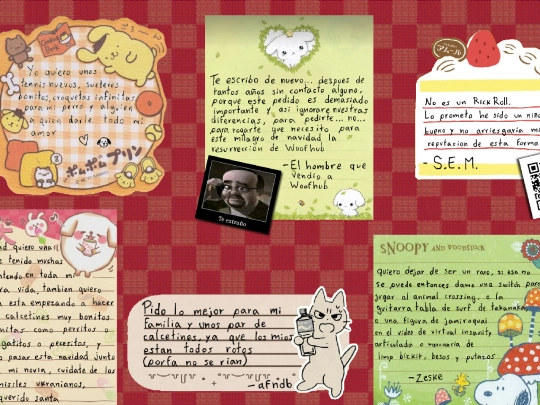 Cooking Book
Yo quiero unos
tennis nuevos, sueteres
bonitos, croquetas infinitas
para mi perro y alguien
a quien darle todo mi
amor
ポムポムプリン
Te escribo de nuevo... despues de
tantos años sin contacto alguno,
porque este pedido es demasiado
importante y asi ignorare nuestras
diferencias, para pedirte... no...
para rogarte que necesito para
este milagro de navidad la
resurrección de Woofhub
-El hombre que
vendio a
Woofhub
Te extraño
アムール
No es un RickRoll.
Lo prometo he sido un niño
bueno y no arriesgaria mi
reputacion de esta forma
- S.E.M.
quiero una
tenido muchas
en toda mi
vida, tambien quiero
esta empezando a hacer
calcetines muy bonitos
como perritos o
gatitos o pecesitos, y
pasar esta navidad junto
mi novia, cuidate de los
misiles ukranianos,
querido santa
Pido lo mejor para mi
familia y unos par de
calcetines, ya que los mios
estan todos rotos
(porfa no se rian)
-afridb
SNOOPY AND WOODSTOCK
quiero dejar de ser un raro, si eso no
se puede entonces dame una switch para
jugar al animal crossing, o la
guitarra tabla de surf de takanaka
o una figura de jamiroquai
en el video de virtual insanity
articulada o mercancia de
limp bizkit, besos y putazos
-Zeske